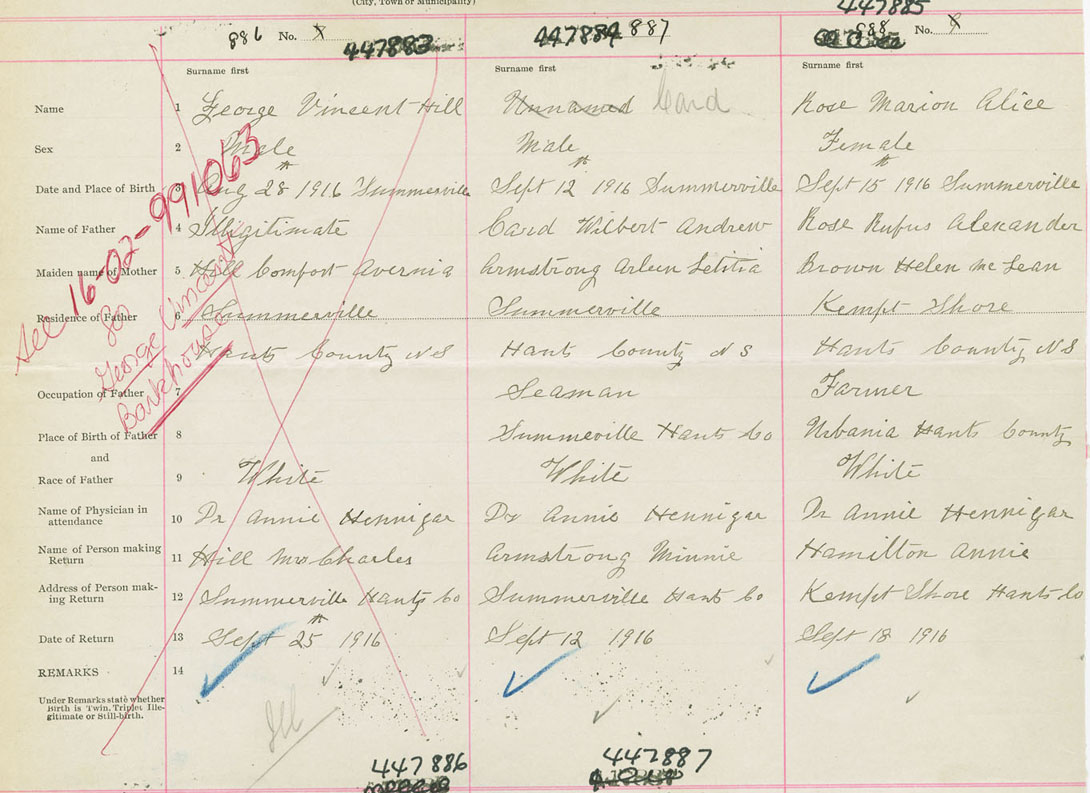 (City, Town or Municipality)
886 No. 447883
447884 887
447885
888 No.
Surname first Surname first Surname first
Name 1 George Vincent Hill Unnamed Card Rose Marion Alice
Sex 2 Male Male Female
Date and Place of Birth 3 Aug 28th 1916 Summerville Sept 12th 1916 Summerville Sept 15th 1916 Summerville
Name of Father 4 Illigitimate Card Wilbert Andrew Rose Rufus Alexander
Maiden name of Mother 5 Hill Comfort Avernia Armstrong Arleen Letitia Brown Helen McLean
Residence of Father 6 Summerville Summerville Kempt Shore
Hants County NS Hants County NS Hants County NS
Occupation of Father 7 Seaman Farmer
Place of Birth of Father 8 Summeville Hants Co Urbania Hants County
and
Race of Father 9 White White White
Name of Physician in
attendance 10 Dr Annie Hennigar Dr Annie Hennigar Dr Annie Hennigar
Name of Person making
Return 11 Hill Mrs Charles Armstrong Minnie Hamilton Annie
Address of Person mak-
ing Return 12 Summerville Hants Co Summerville Hants Co Kempt Shore Hants Co
Date of Return 13 Sept 25th 1916 Sept 12 1916 Sept 18 1916
REMARKS 14
Under Remarks state whether
Birth is Twin, Triplet Ille-
gitimate or Still-birth.
Ill
See 16-02-991063
for
George Vincent
Barkhouse
447886 447887